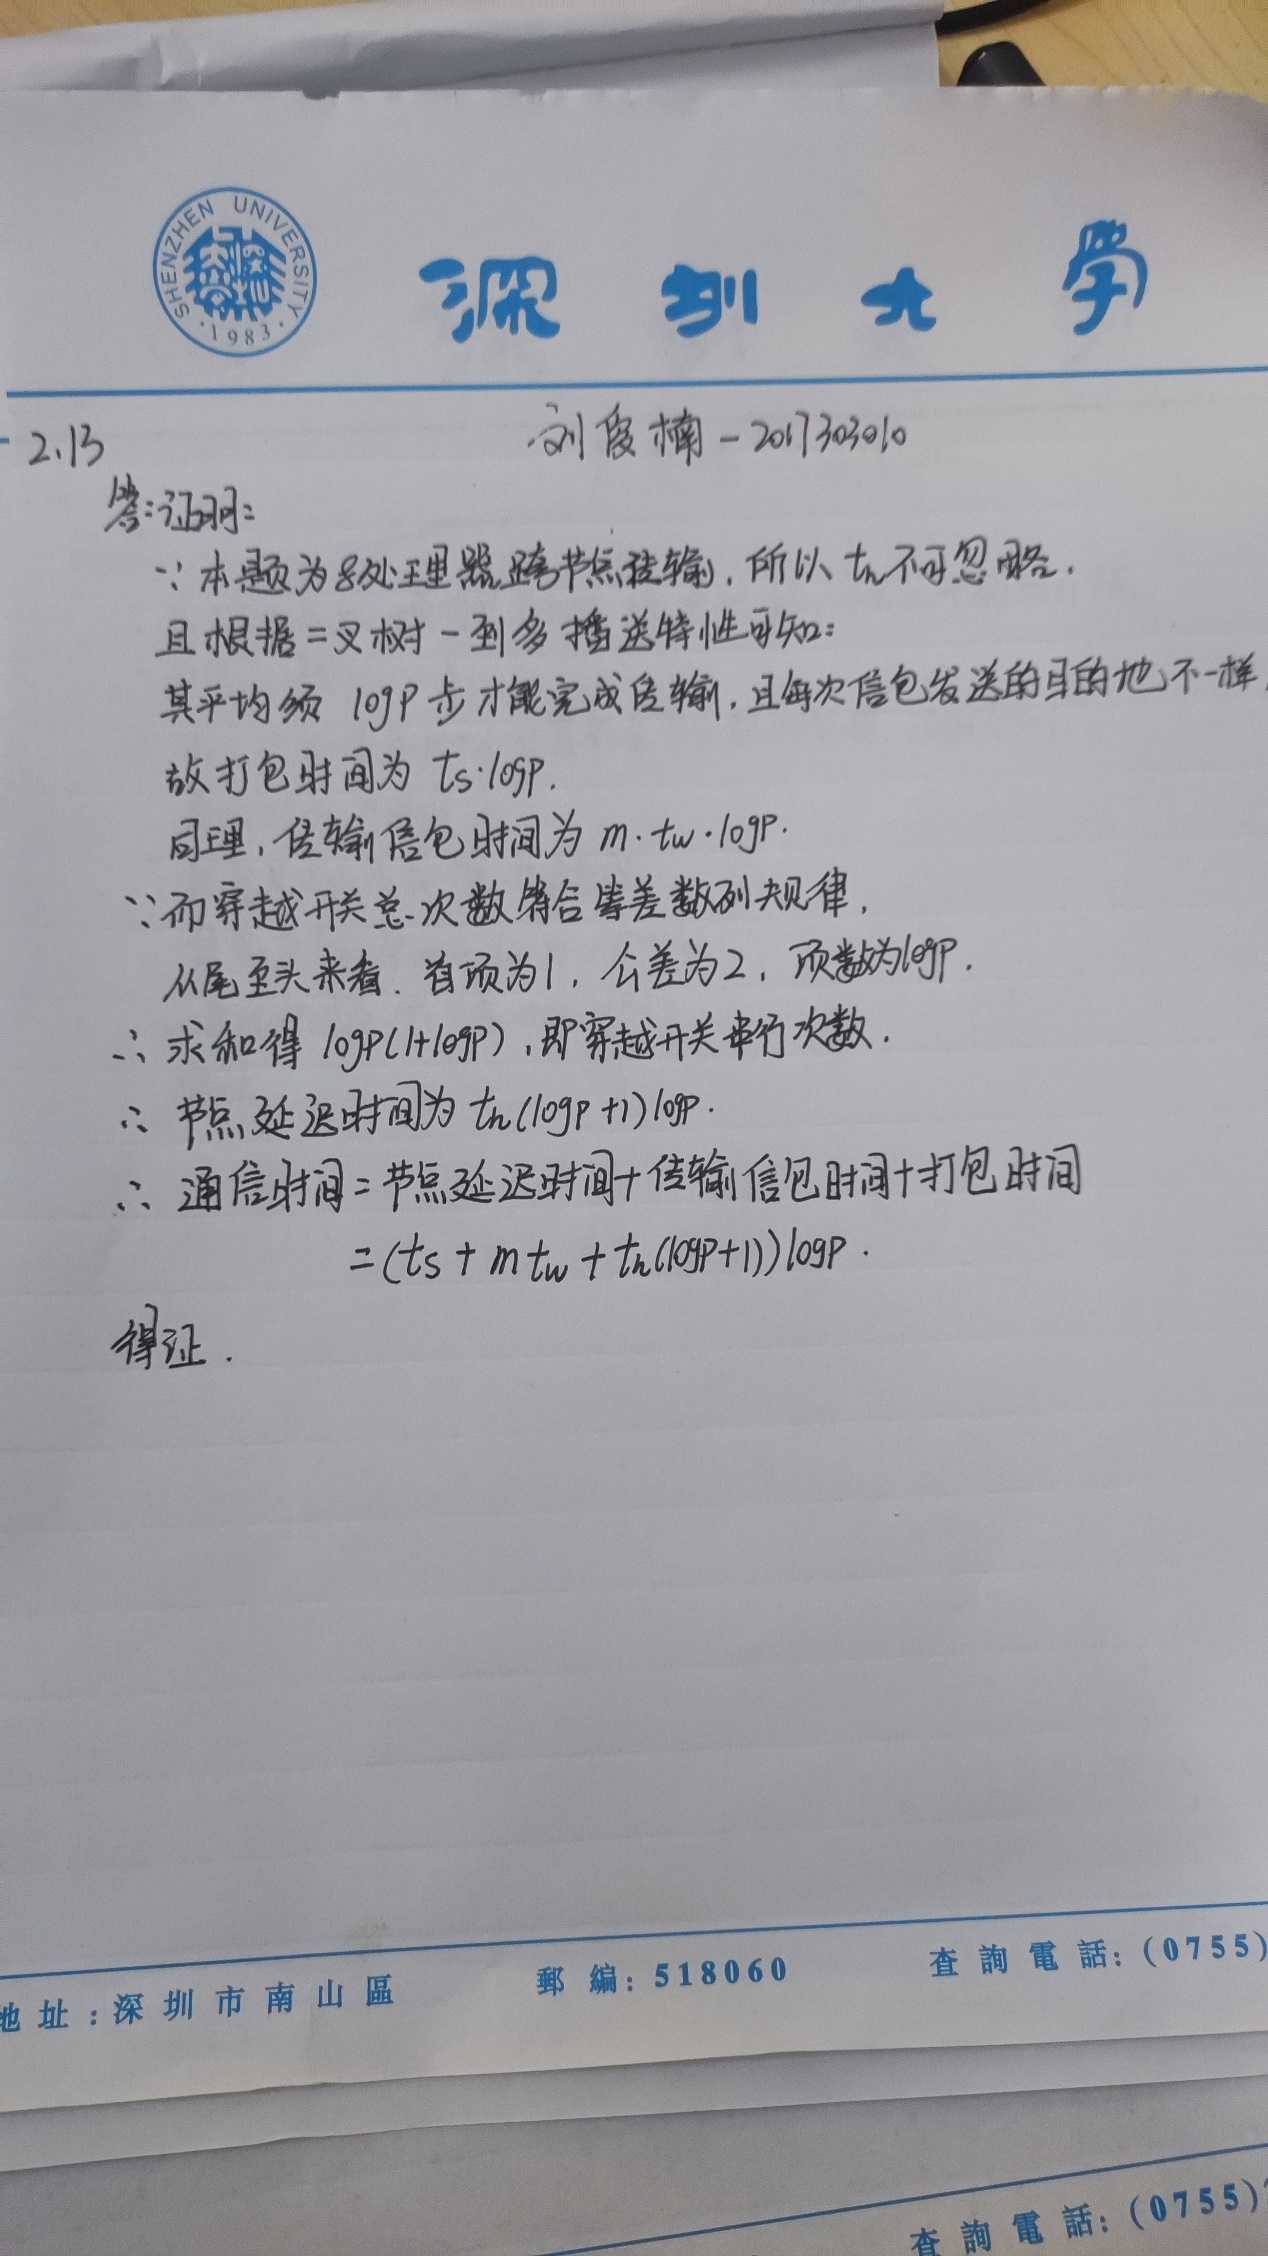 SHENZHEN UNIVERSITY
·1983·
深圳大学
2.13
刘俊楠-2017303010
答:证明:
∵本题为8处理器跨节点传输,所以th不可忽略.
且根据二叉树一到多播送特性可知:
其平均须 logP步才能完成传输,且每次信包发送的目的地不一样,
故打包时间为 ts·logP.
同理,传输信包时间为 m·tw·logP.
∵而穿越开关总次数符合等差数列规律,
从尾至头来看.首项为1,公差为2,项数为logP.
∴求和得 logP(1+logP),即穿越开关串行次数.
∴节点延迟时间为 th(logP+1)logP.
∴通信时间=节点延迟时间+传输信包时间+打包时间
=(ts+mtw+th(logP+1))logP.
得证.
地址:深圳市南山區 郵編:518060 查詢電話:(0755)
查詢電話:(0755)